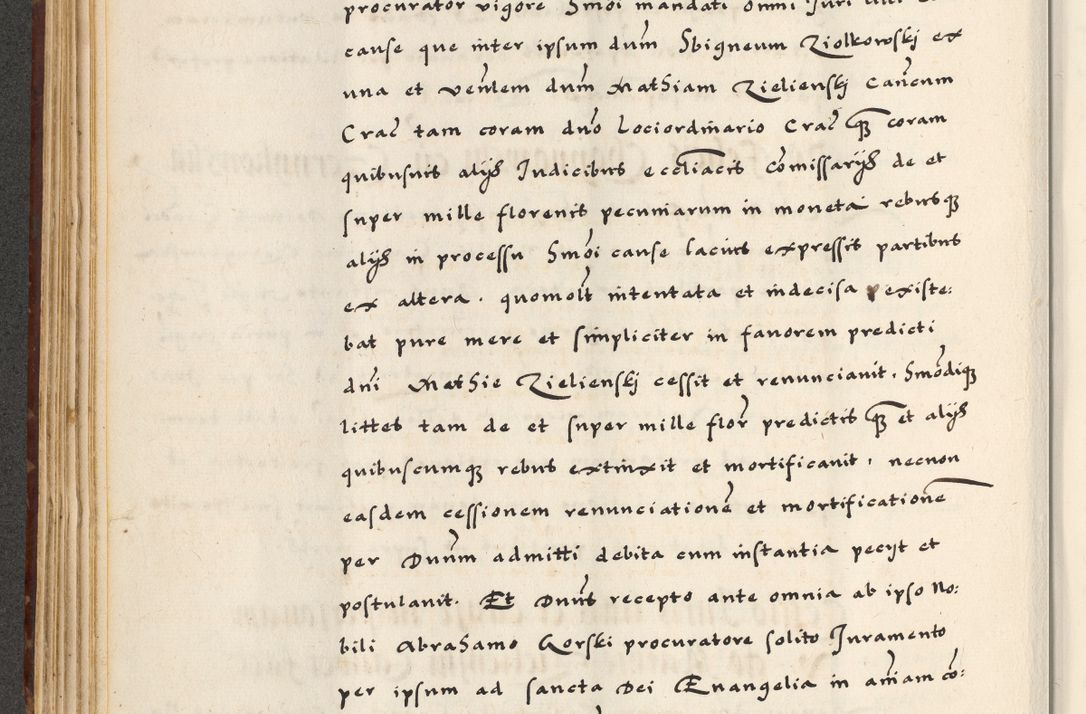 procurator vigore Smoi mandati omni Juri
cause que inter ipsum dum Sbigneum Ziolkowskj ex
una et venlem dum Mathiam Zielienskj Cancum
Crac tam coram dno Lociordinario Crac qz coram
quibusvis alijs Judicibus eccliacis comissarijs de et
super mille florenis pecuniarum in moneta rebusqz
alijs in processu Smoi cause lacius expressis partibus
ex altera . quomolt intentata et indecisa existe:
bat pure mere et simpliciter in favorem predicti
dni Mathie Zielienskj cessit et renunciavit . Smodiqz
littes tam de et super mille flor predictis qz et alijs
quibuscumqz rebus extinxit et mortificavit , necnon
easdem cessionem renunciatione et mortificatione
per Dnum admitti debita cum instantia pecijt et
postulavit . Et Dnus recepto ante omnia ab ipso No:
bili Abrahamo Gorski procuratore solito Juramento
per ipsum ad sancta Dei Evangelia in aniam co: